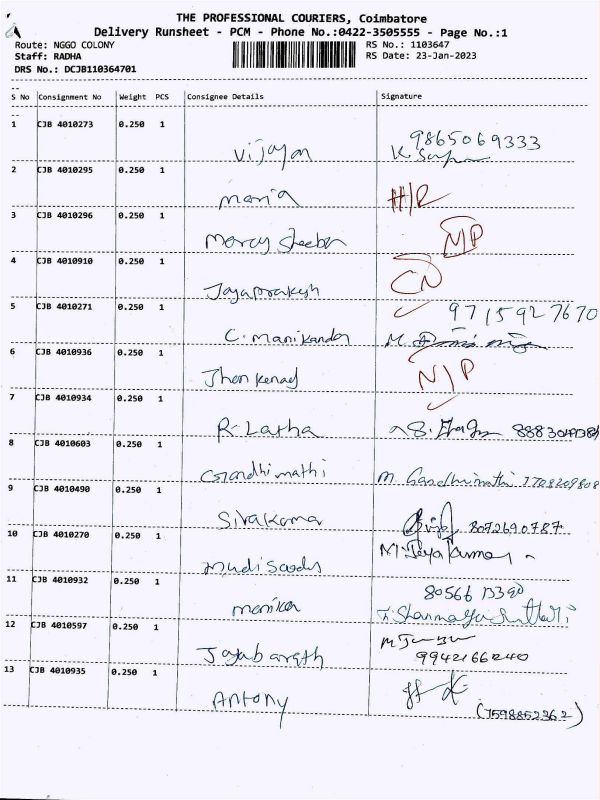 THE PROFESSIONAL COURIERS, Coimbatore
Delivery Runsheet - PCM - Phone No.:0422-3505555 - Page No.:1
Route: NGGO COLONY RS No.: 1103647
Staff: RADHA RS Date: 23-Jan-2023
DRS No.: DCJB110364701
S No Consignment No Weight PCS Consignee Details Signature
1 CJB 4010273 0.250 1 9865069333
Vijayan
2 CJB 4010295 0.250 1
Maria
3 CJB 4010296 0.250 1 N/P
Mercy Sheeba
4 CJB 4010910 0.250 1 CN
Jayaprakash
5 CJB 4010271 0.250 1 9715927670
C. Manikandan M.
6 CJB 4010936 0.250 1 N/P
Jhon kenady
7 CJB 4010934 0.250 1
R. Latha
8 CJB 4010603 0.250 1
Gandhimathi M. Gandhimathi
9 CJB 4010490 0.250 1
Sivakumar 8072690787
10 CJB 4010270 0.250 1 M. Jayakumar
11 CJB 4010932 0.250 1 80566 13390
monika
12 CJB 4010597 0.250 1
Jayabarath 9942166240
13 CJB 4010935 0.250 1
Antony (7598852362)